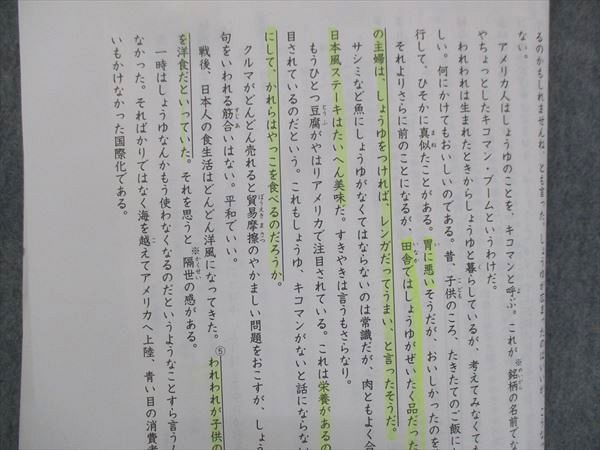 るのかもしれませんね、とも言った。しょうゆが
ない。
アメリカ人はしょうゆのことを、キコマンと呼ぶ。これが※銘柄の名前でな
やちょっとしたキコマン・ブームというわけだ。
われわれは生まれたときからしょうゆと暮らしているが、考えてみなくても
しい。何にかけてもおいしいのである。昔、子供のころ、たきたてのご飯に
行して、ひそかに真似たことがある。胃に悪いそうだが、おいしかったのを
それよりさらに前のことになるが、田舎ではしょうゆがぜいたく品だった
の主婦は、しょうゆをつければ、レンガだってうまい、と言ったそうだ。
サシミなど魚にしょうゆがなくてはならないのは常識だが、肉ともよく合
日本風ステーキはたいへん美味だ。すきやきは言うもさらなり。
もうひとつ豆腐がやはりアメリカで注目されている。これは栄養があるの
目されているのだという。これもしょうゆ、キコマンがないと話にならない
にして、かれらはやっこを食べるのだろうか。
クルマがどんどん売れると貿易摩擦のやかましい問題をおこすが、しょう
句をいわれる筋合いはない。平和でいい。
戦後、日本人の食生活はどんどん洋風になってきた。⑤われわれが子供の
を洋食だといっていた。それを思うと※隔世の感がある。
一時はしょうゆなんかもう使わなくなるのだというようなことすら言う人
なかった。そればかりではなく海を越えてアメリカへ上陸、青い目の消費者
いもかけなかった国際化である。